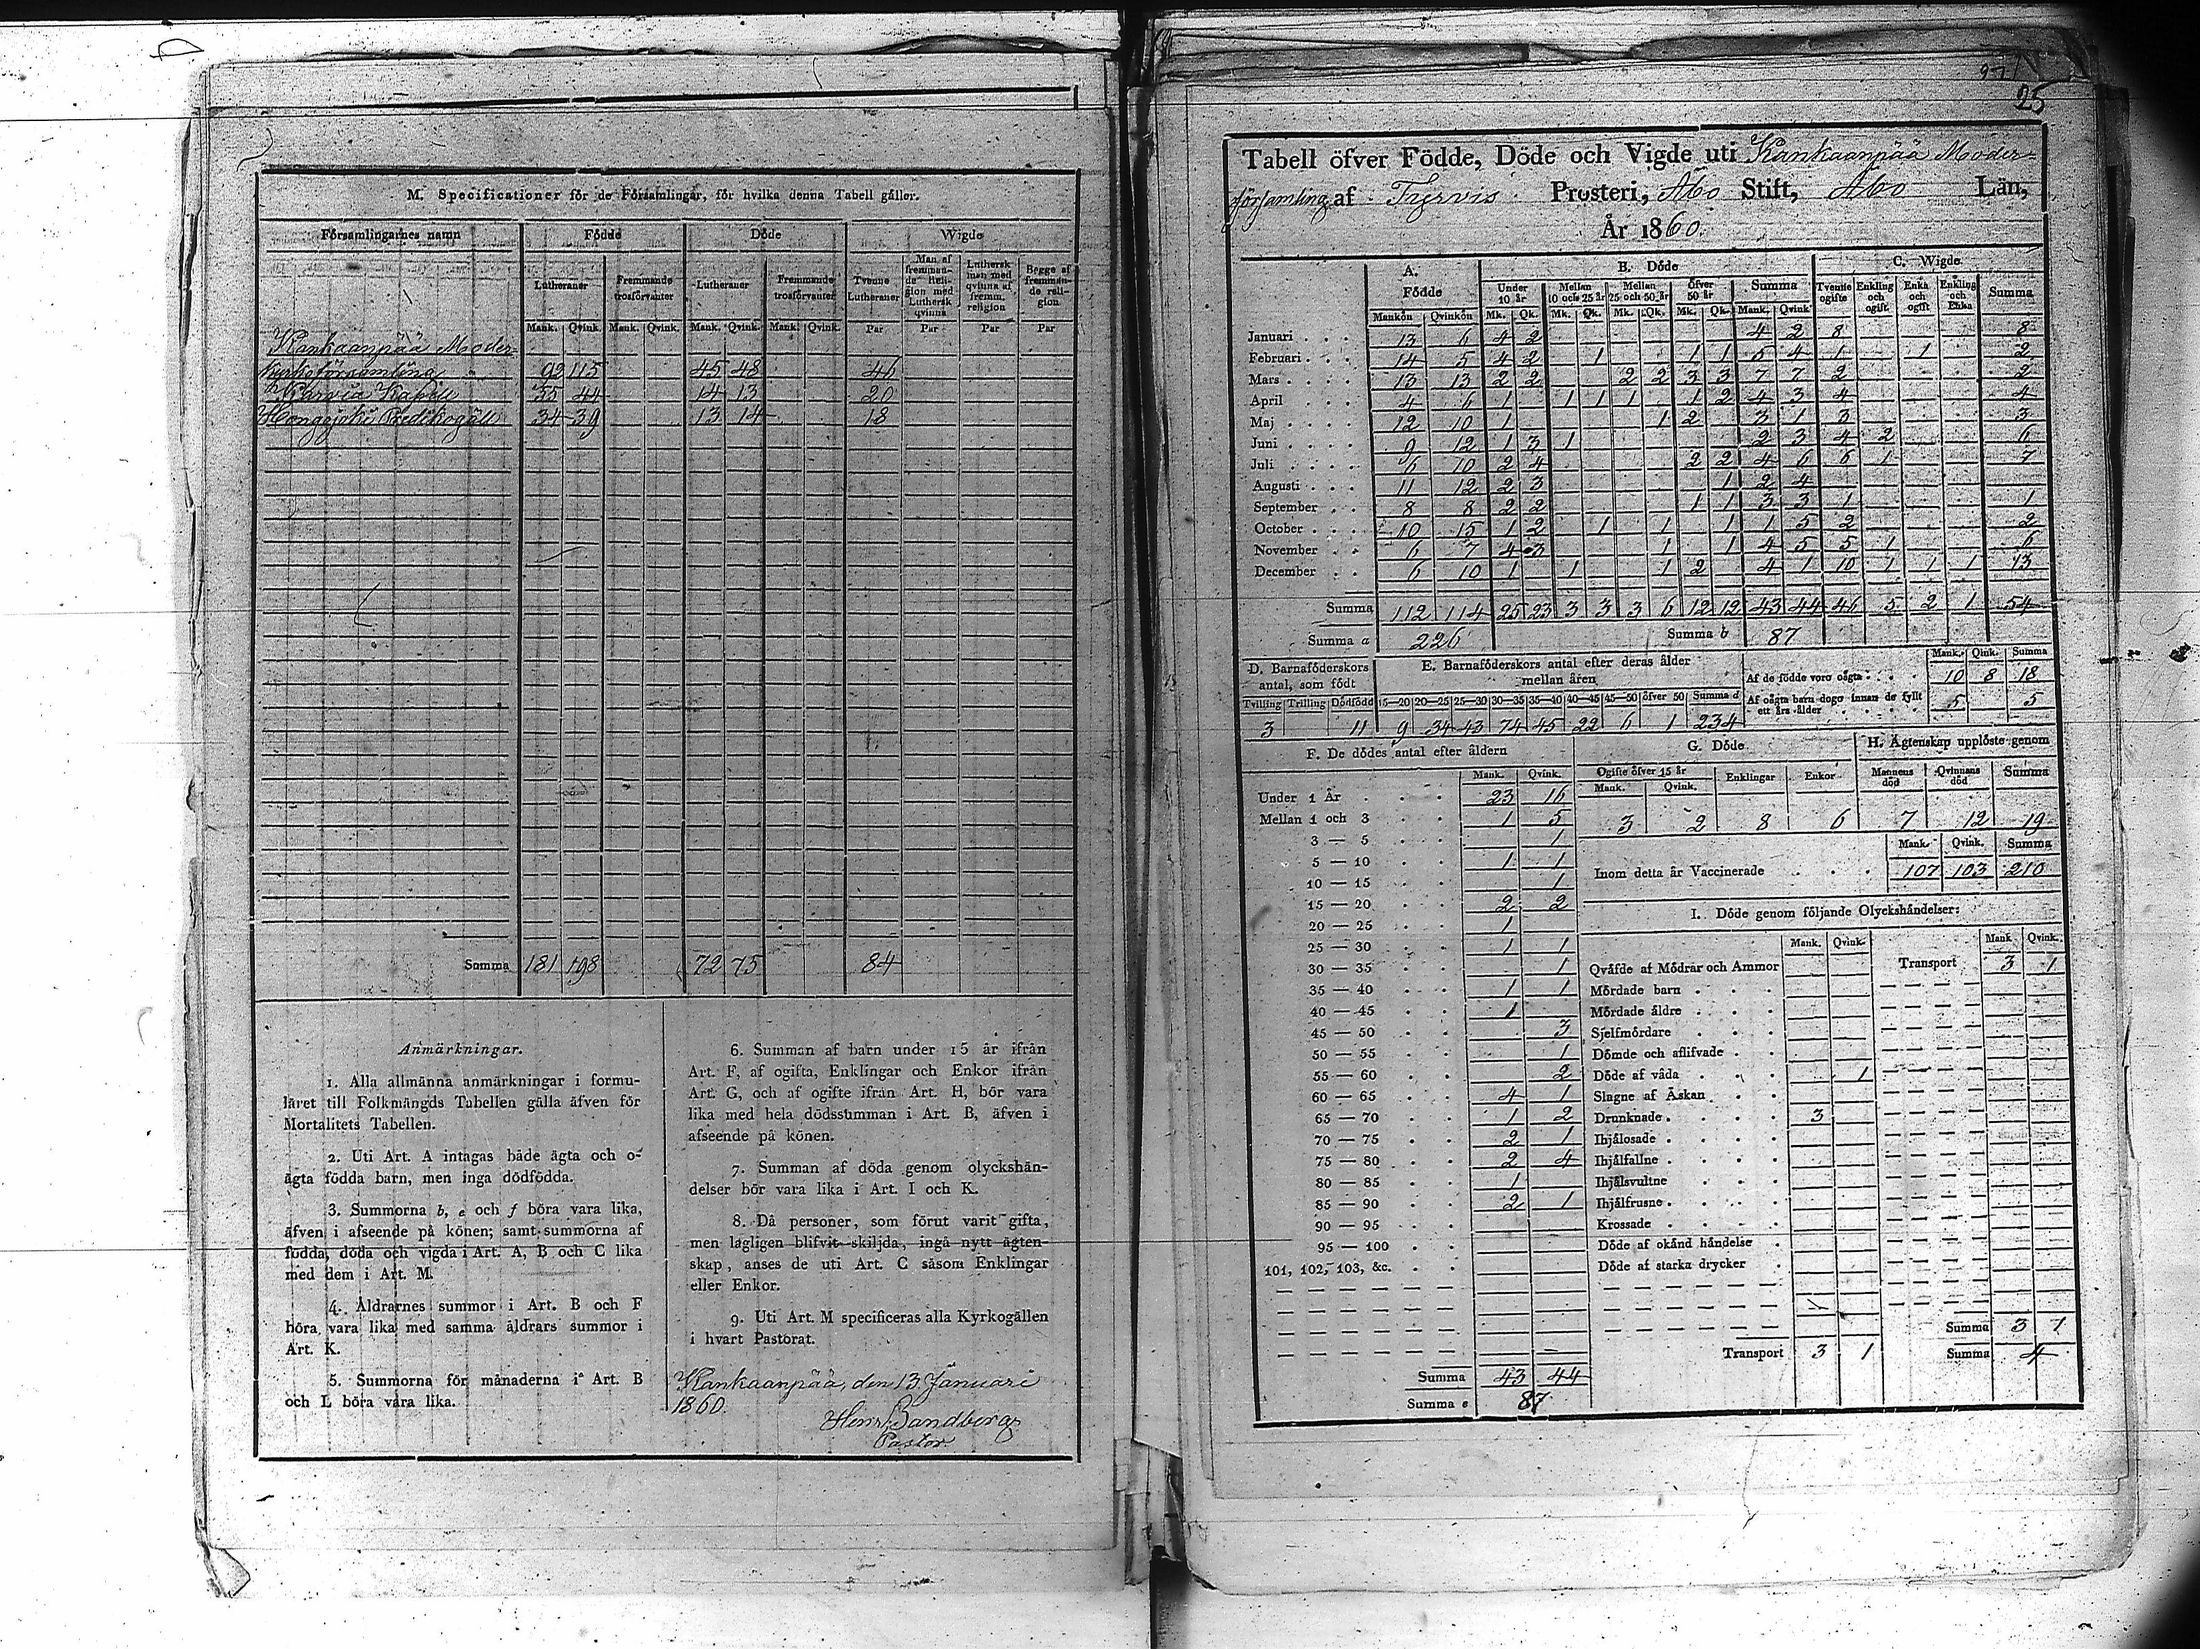 M. Specificationer för de Församlingar, för hvilka denna Tabell gäller.
Församlingarnes namn Födde Döde Wigde
Lutheraner Fremmande trosförvanter Lutheraner Fremmande trosförvanter Tvenne Lutheraner Man af fremmande Religion med Luthersk qvinna Luthersk man med qvinna af fremm. religion Begge af fremmande religion
Mank. Qvink. Mank. Qvink. Mank. Qvink. Mank. Qvink. Par Par Par Par
Kankaanpää Moder-
kyrkoförsamling 92 115 45 48 46
Karvia Kapell 55 44 14 13 20
Hongojoki Predikogäll 34 39 13 14 18
Summa 181 198 72 75 84
Anmärkningar.
1. Alla allmänna anmärkningar i formu-
läret till Folkmängds Tabellen gälla äfven för
Mortalitets Tabellen.
2. Uti Art. A intagas både ägta och o-
ägta födda barn, men inga dödfödda.
3. Summorna b, e och f böra vara lika,
äfven i afseende på könen; samt summorna af
födda, döda och vigda i Art. A, B och C lika
med dem i Art. M.
4. Åldrarnes summor i Art. B och F
böra vara lika med samma åldrars summor i
Art. K.
5. Summorna för månaderna i Art. B
och L böra vara lika.
6. Summan af barn under 15 år ifrån
Art. F, af ogifta, Enklingar och Enkor ifrån
Art. G, och af ogifte ifrån Art. H, bör vara
lika med hela dödssumman i Art. B, äfven i
afseende på könen.
7. Summan af döda genom olyckshän-
delser bör vara lika i Art. I och K.
8. Då personer, som förut varit gifta,
men lagligen blifvit skiljda, ingå nytt ägten-
skap, anses de uti Art. C såsom Enklingar
eller Enkor.
9. Uti Art. M specificeras alla Kyrkogällen
i hvart Pastorat.
Kankaanpää, den 13 Januari
1860.
Henr. Sandberg
Pastor
25
Tabell öfver Födde, Döde och Vigde uti Kankaanpää Moder-
församling af Tyrvis Prosteri, Åbo Stift, Åbo Län,
År 1860.
A. Födde B. Döde C. Wigde
Under 10 år Mellan 10 och 25 år Mellan 25 och 50 år Öfver 50 år Summa Tvenne ogifte Enkling och ogift Enka och ogift Enkling och Enka Summa
Mankön Qvinkön Mk. Qk. Mk. Qk. Mk. Qk. Mk. Qk. Mank. Qvink.
Januari 13 6 4 2 4 2 8 8
Februari 14 5 4 2 1 1 1 5 4 1 1 2
Mars 13 13 2 2 2 2 3 3 7 7 2 2
April 4 6 1 1 1 1 1 2 4 3 4 4
Maj 12 10 1 1 2 3 1 3 3
Juni 9 12 1 3 1 2 3 4 2 6
Juli 6 10 2 4 2 2 4 6 6 1 7
Augusti 11 12 2 3 1 2 4
September 8 8 2 2 1 1 3 3 1 1
October 10 15 1 2 1 1 1 1 5 2 2
November 6 7 4 3 1 1 4 5 5 1 6
December 6 10 1 1 1 2 4 1 10 1 1 1 13
Summa 112 114 25 23 3 3 3 6 12 12 43 44 46 5 2 1 54
Summa a 226 Summa b 87
D. Barnaföderskors antal, som födt
Tvilling Trilling Dödfödd
3 11
E. Barnaföderskors antal efter deras ålder mellan åren
15—20 20—25 25—30 30—35 35—40 40—45 45—50 öfver 50 Summa d
9 34 43 74 45 22 6 1 234
Mank. Qink. Summa
Af de födde voro oägta 10 8 18
Af oägta barn dogo innan de fyllt ett års ålder 5 5
F. De dödes antal efter åldern
Mank. Qvink.
Under 1 År 23 16
Mellan 1 och 3 1 5
3 — 5 1
5 — 10 1 1
10 — 15 1
15 — 20 2 2
20 — 25 1
25 — 30 1 1
30 — 35 1
35 — 40 1 1
40 — 45 1
45 — 50 3
50 — 55 1
55 — 60 2
60 — 65 4 1
65 — 70 1 2
70 — 75 2 1
75 — 80 2 4
80 — 85 1
85 — 90 2 1
90 — 95
95 — 100
101, 102, 103, &c.
Summa 43 44
Summa e 87
G. Döde
Ogifte öfver 15 år Enklingar Enkor
Mank. Qvink.
3 2 8 6
H. Ägtenskap upplöste genom
Mannens död Qvinnans död Summa
7 12 19
Mank. Qvink. Summa
Inom detta år Vaccinerade 107 103 210
I. Döde genom följande Olyckshändelser:
Mank. Qvink. Mank. Qvink.
Qväfde af Mödrar och Ammor Transport 3 1
Mördade barn
Mördade äldre
Sjelfmördare
Dömde och aflifvade
Döde af våda 1
Slagne af Åskan
Drunknade 3
Ihjälosade
Ihjälfallne
Ihjälsvultne
Ihjälfrusne
Krossade
Döde af okänd händelse
Döde af starka drycker
Summa 3 1
Transport 3 1 Summa 4